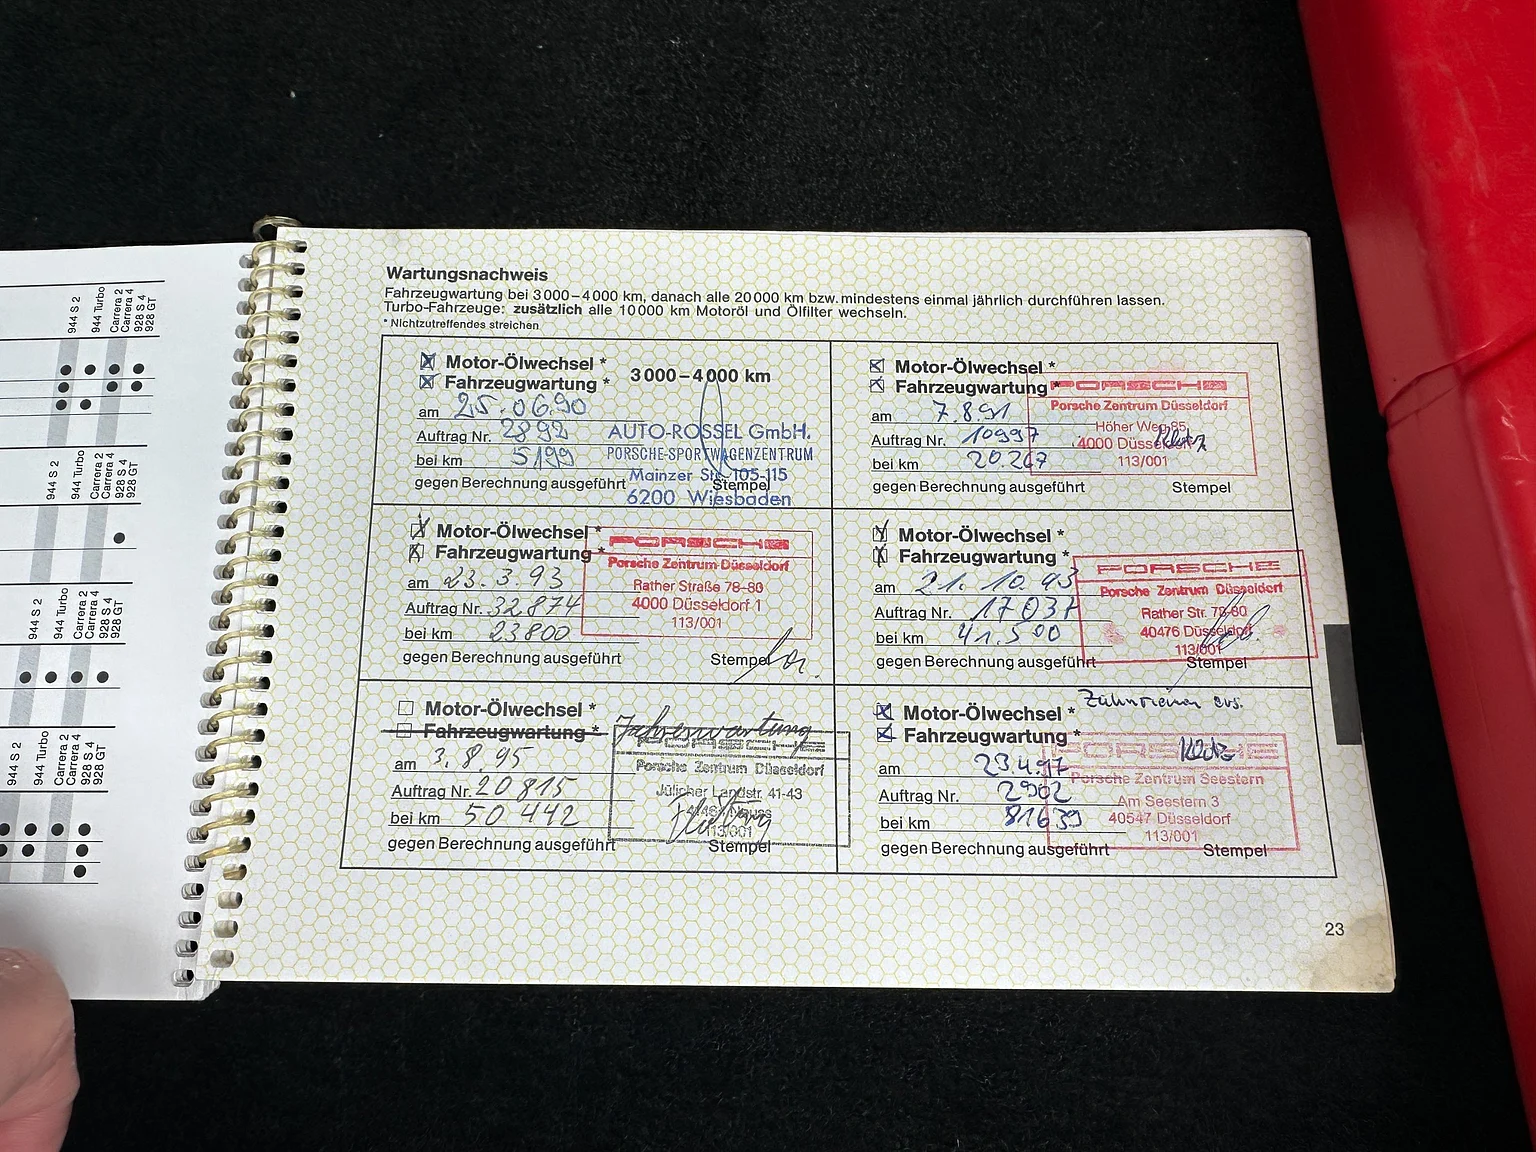 944 S 2
944 Turbo
Carrera 2
Carrera 4
928 S 4
928 GT
944 S 2
944 Turbo
Carrera 2
Carrera 4
928 S 4
928 GT
944 S 2
944 Turbo
Carrera 2
Carrera 4
928 S 4
928 GT
944 S 2
944 Turbo
Carrera 2
Carrera 4
928 S 4
928 GT
Wartungsnachweis
Fahrzeugwartung bei 3000–4000 km, danach alle 20000 km bzw. mindestens einmal jährlich durchführen lassen.
Turbo-Fahrzeuge: zusätzlich alle 10000 km Motoröl und Ölfilter wechseln.
* Nichtzutreffendes streichen
Motor-Ölwechsel *
Fahrzeugwartung *
3000–4000 km
am 25.06.90
Auftrag Nr. 2892
bei km 5199
gegen Berechnung ausgeführt
Stempel
AUTO-ROSSEL GmbH.
PORSCHE-SPORTWAGENZENTRUM
Mainzer Str. 105-115
6200 Wiesbaden
Motor-Ölwechsel *
Fahrzeugwartung *
am 7.8.91
Auftrag Nr. 10997
bei km 20.267
gegen Berechnung ausgeführt
Stempel
PORSCHE
Porsche Zentrum Düsseldorf
Höher Weg 85
4000 Düsseldorf
113/001
Motor-Ölwechsel *
Fahrzeugwartung *
am 23.3.93
Auftrag Nr. 32874
bei km 23800
gegen Berechnung ausgeführt
Stempel
PORSCHE
Porsche Zentrum Düsseldorf
Rather Straße 78-80
4000 Düsseldorf 1
113/001
Motor-Ölwechsel *
Fahrzeugwartung *
am 21.10.93
Auftrag Nr. 17037
bei km 41.500
gegen Berechnung ausgeführt
Stempel
PORSCHE
Porsche Zentrum Düsseldorf
Rather Str. 78-80
40476 Düsseldorf
113/001
Motor-Ölwechsel *
Fahrzeugwartung *
Jahreswartung
am 3.8.95
Auftrag Nr. 20815
bei km 50442
gegen Berechnung ausgeführt
Stempel
PORSCHE
Porsche Zentrum Düsseldorf
Jülicher Landstr. 41-43
Neuss
113/001
Zahnriemen ers.
Motor-Ölwechsel *
Fahrzeugwartung *
am 23.4.97
Auftrag Nr. 2902
bei km 81639
gegen Berechnung ausgeführt
Stempel
PORSCHE
Porsche Zentrum Seestern
Am Seestern 3
40547 Düsseldorf
113/001
23